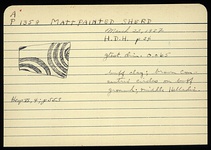 A
P 1359 MATTPAINTED SHERD
March 21, 1952
H.D.H. p 24
gtest dim. 0.065
buff clay; brown con-
centric circles on buff
ground; Middle Helladic